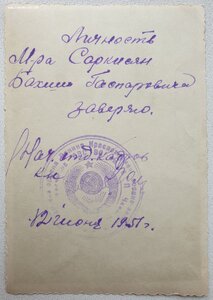 Личность
Мра Саркисян
Бахши Гаспаровича
заверяю.
Нач. отд. кадров
12 июня 1951 г.